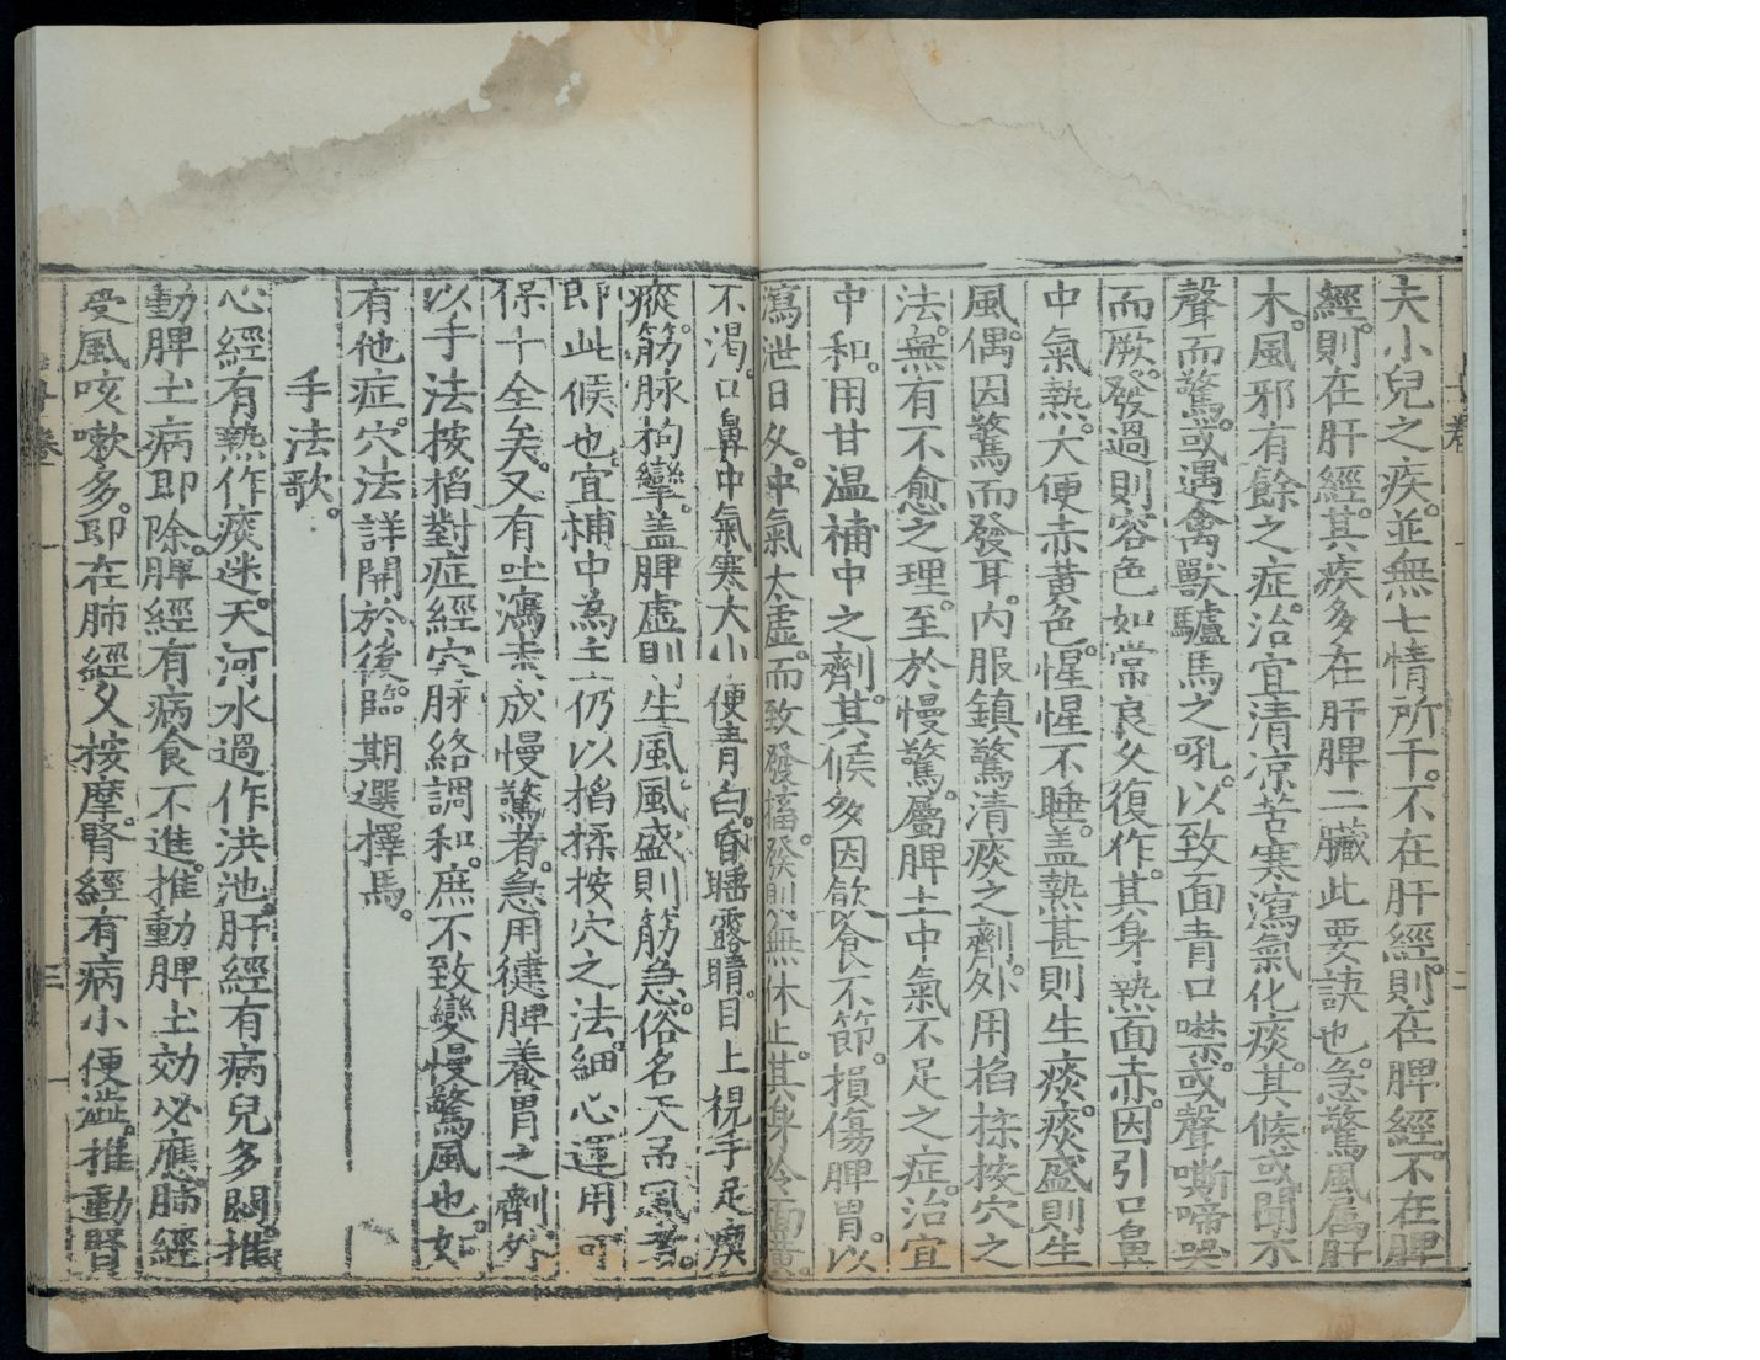 夫小兒之疾。並無七情所干。不在肝經。則在脾經。不在脾
經。則在肝經。其疾多在肝脾二臟此要訣也。急驚風属肝
木。風邪有餘之症。治宜清凉苦寒瀉氣化痰。其候或聞木
聲而驚。或遇禽獸驢馬之吼。以致面青口噤。或聲嘶啼哭
而厥。發過則容色如常。良久復作。其身熱面赤。因引口鼻
中氣熱。大便赤黃色。惺惺不睡。盖熱甚則生痰。痰盛則生
風。偶因驚而發耳。内服鎮驚清痰之劑。外用掐揉按穴之
法。無有不愈之理。至於慢驚。屬脾土中氣不足之症。治宜
中和。用甘温補中之劑。其候多因飲食不節。損傷脾胃。以
瀉泄日久。中氣太虛。而致發搐。發則無休止。其身冷面黃。
不渴。口鼻中氣寒大小便青白。昏睡露睛。目上視手足瘈
瘲。筋脉拘攣。盖脾虛則生風。風盛則筋急。俗名天吊風者。
即此候也。宜補中為主仍以掐揉按穴之法。細心運用可
保十全矣。又有吐瀉未成慢驚者。急用健脾養胃之劑。外
以手法按掐對症經穴脉絡調和。庶不致變慢驚風也。如
有他症。穴法詳開於後。臨期選擇焉。
手法歌。
心經有熱作痰迷。天河水過作洪池。肝經有病兒多悶。推
動脾土病即除。脾經有病食不進。推動脾土効必應。肺經
受風咳嗽多。即在肺經久按摩。腎經有病小便澁。推動腎